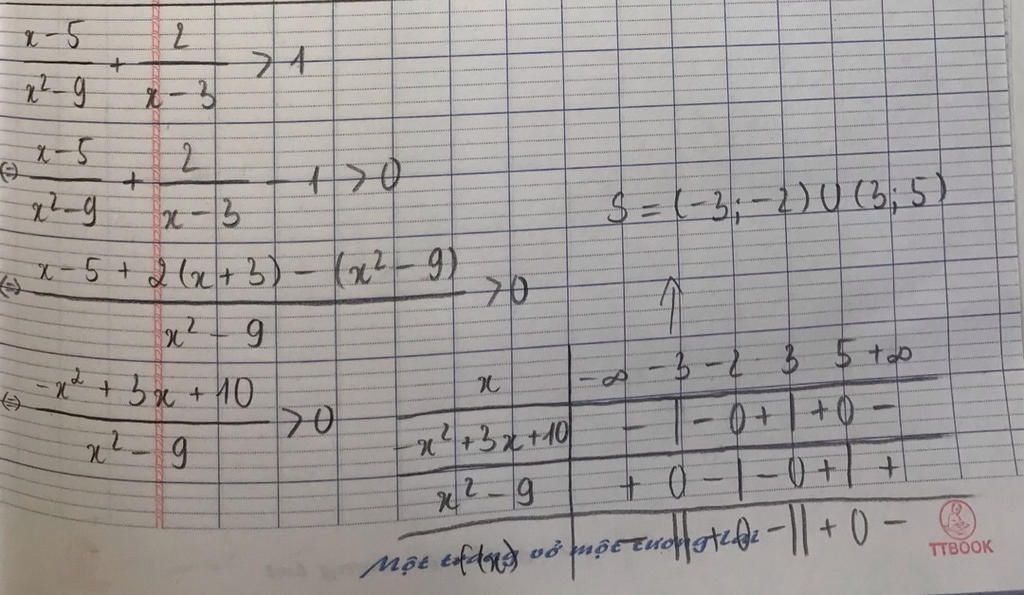 x-5/x²-9 + 2/x-3 > 1
⇔ x-5/x²-9 + 2/x-3 - 1 > 0
S = (-3; -2) ∪ (3; 5)
⇔ x-5 + 2(x+3) - (x²-9)/x²-9 > 0
↑
⇔ -x² + 3x + 10/x² - 9 > 0
x | -∞ -3 -2 3 5 +∞
-x²+3x+10 | - | - 0 + | + 0 -
x² - 9 | + 0 - | - 0 + | +
f(x) | - || + 0 - || + 0 -
Một vở một tương lai
TTBOOK